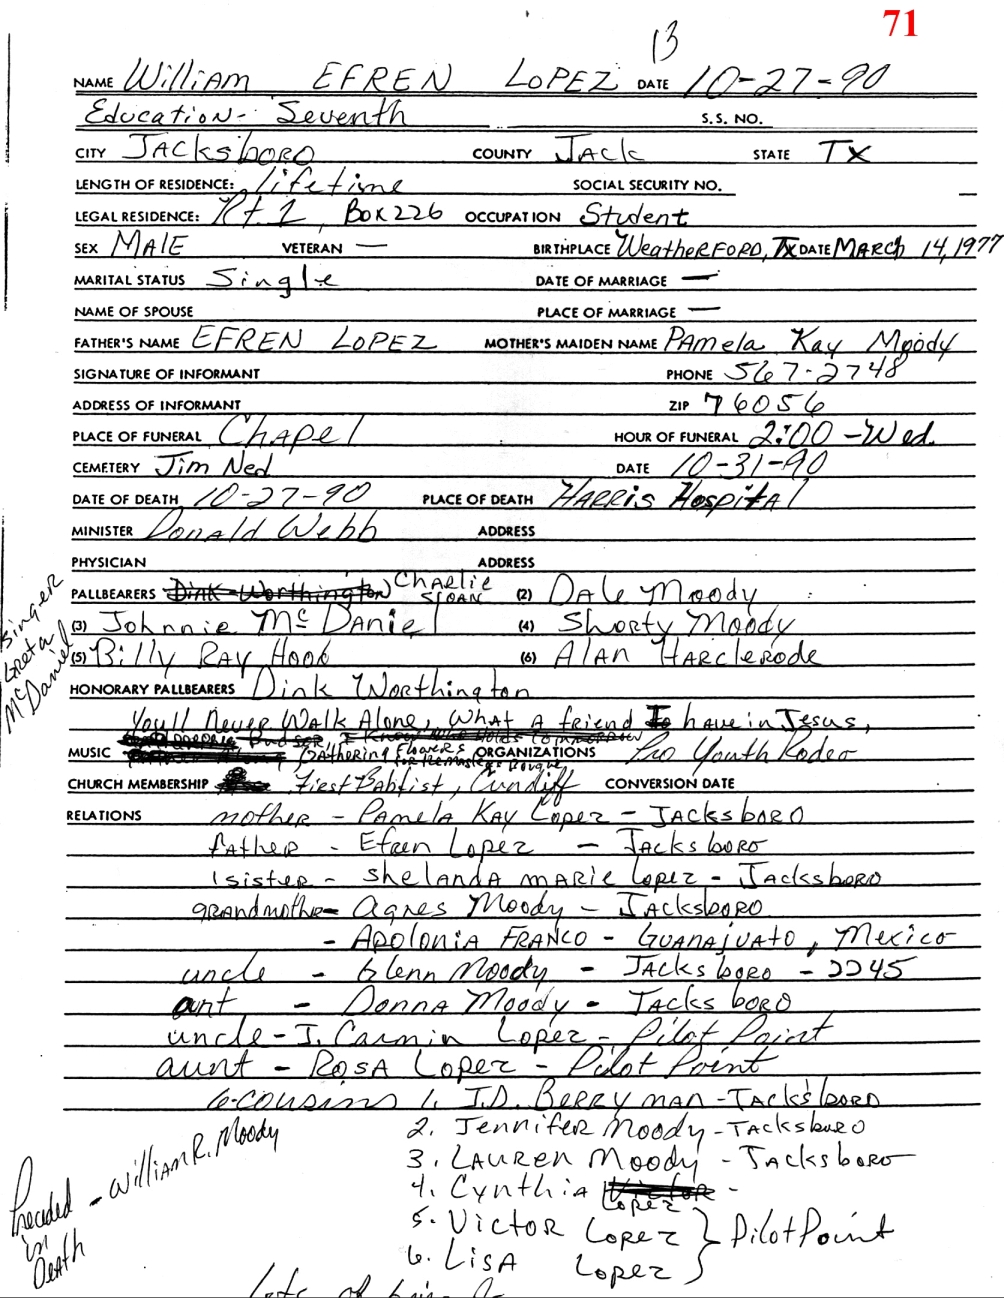 71
13
NAME William EFREN LOPEZ DATE 10-27-90
Education- Seventh S.S. NO.
CITY JACKsboro COUNTY JACK STATE TX
LENGTH OF RESIDENCE: lifetime SOCIAL SECURITY NO.
LEGAL RESIDENCE: Rt. 1 Box 226 OCCUPATION Student
SEX MALE VETERAN — BIRTHPLACE WeatheRFORD, TX DATE MARCh 14, 1977
MARITAL STATUS Single DATE OF MARRIAGE —
NAME OF SPOUSE PLACE OF MARRIAGE —
FATHER'S NAME EFREN LOPEZ MOTHER'S MAIDEN NAME PAmela Kay Moody
SIGNATURE OF INFORMANT PHONE 567-2748
ADDRESS OF INFORMANT ZIP 76056
PLACE OF FUNERAL Chapel HOUR OF FUNERAL 2:00 -Wed.
CEMETERY Jim Ned DATE 10-31-90
DATE OF DEATH 10-27-90 PLACE OF DEATH HARRis HospitAl
MINISTER Donald Webb ADDRESS
PHYSICIAN ADDRESS
PALLBEARERS Dink Worthington Charlie SLOAN (2) DAle Moody
(3) Johnnie McDaniel (4) Shorty Moody
(5) Billy RAY Hook (6) AlAN HARClerode
Singer Greta McDaniel
HONORARY PALLBEARERS Dink Worthington
You'll Never Walk Alone, What A friend to have in Jesus,
I Know Who Holds Tomorrow
MUSIC Gathering Flowers for the masters Bouque ORGANIZATIONS Pro Youth Rodeo
CHURCH MEMBERSHIP First Baptist, Cundiff CONVERSION DATE
RELATIONS mother - Pamela Kay Lopez - JACKsboro
father - Efren Lopez - Jacksboro
1 sister - Shelanda marie Lopez - Jacksboro
grandmother- Agnes Moody - JACKsboro
- Apolonia FRANCO - GUANAJUATO, Mexico
uncle - Glenn Moody - JACKsboro - 2245
aunt - Donna Moody - Jacksboro
uncle - J. Carmin Lopez - Pilot Point
aunt - RosA Lopez - Pilot Point
6-cousins 1. J.D. BERRYman - Jacksboro
2. Jennifer Moody - JACKsboro
3. LAUREN Moody - Jacksboro
4. CYNthiA Victor - Lopez
5. Victor Lopez } Pilot Point
6. LisA Lopez
Preceded in Death - William R. Moody
lots of